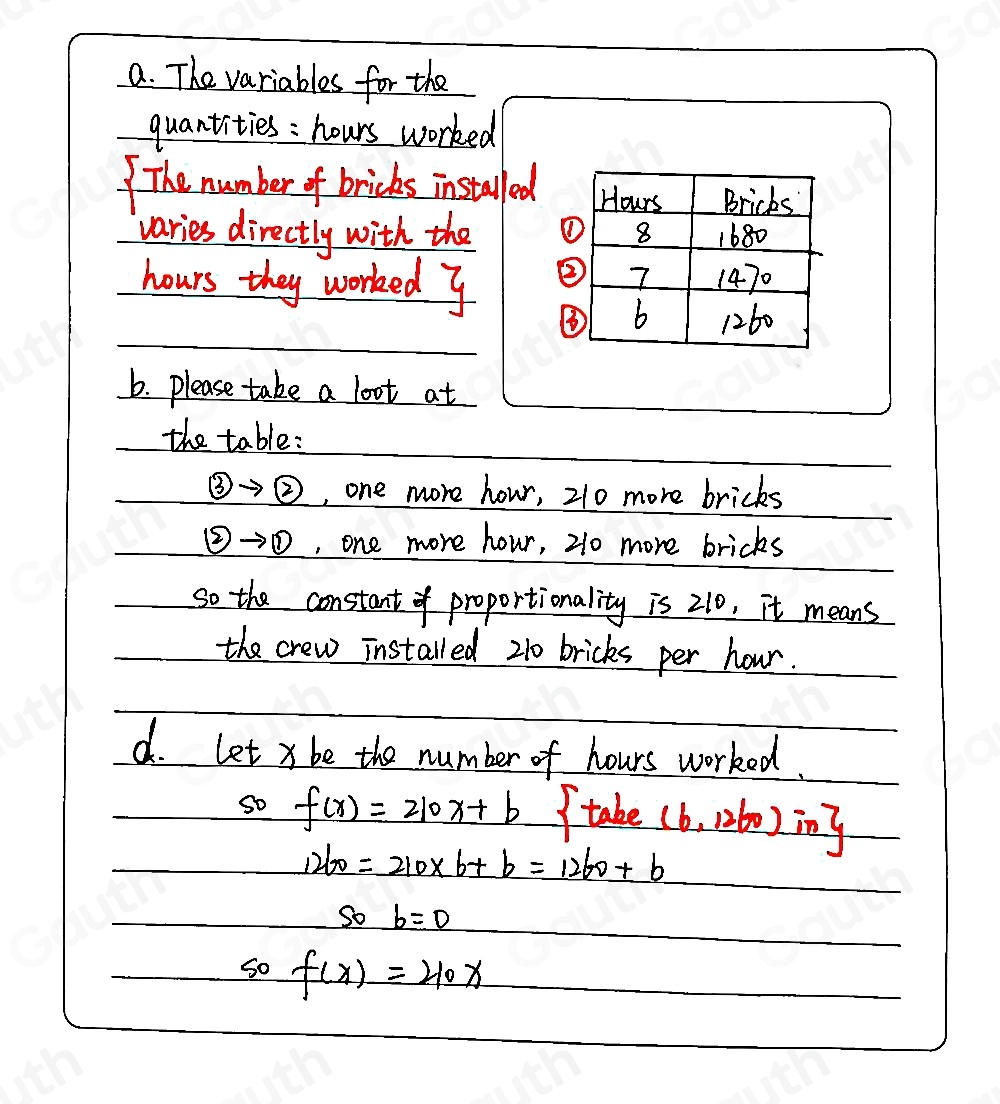 a. The variables for the
quantities: hours worked
{The number of bricks installed
varies directly with the
hours they worked}
Hours Bricks
① 8 1680
② 7 1470
③ 6 1260
b. please take a loot at
the table:
③→②, one more hour, 210 more bricks
②→①, one more hour, 210 more bricks
so the constant of proportionality is 210, it means
the crew installed 210 bricks per hour.
d. Let x be the number of hours worked.
so f(x) = 210x + b {take (6, 1260) in}
1260 = 210×6 + b = 1260 + b
So b=0
so f(x) = 210x
Gauth